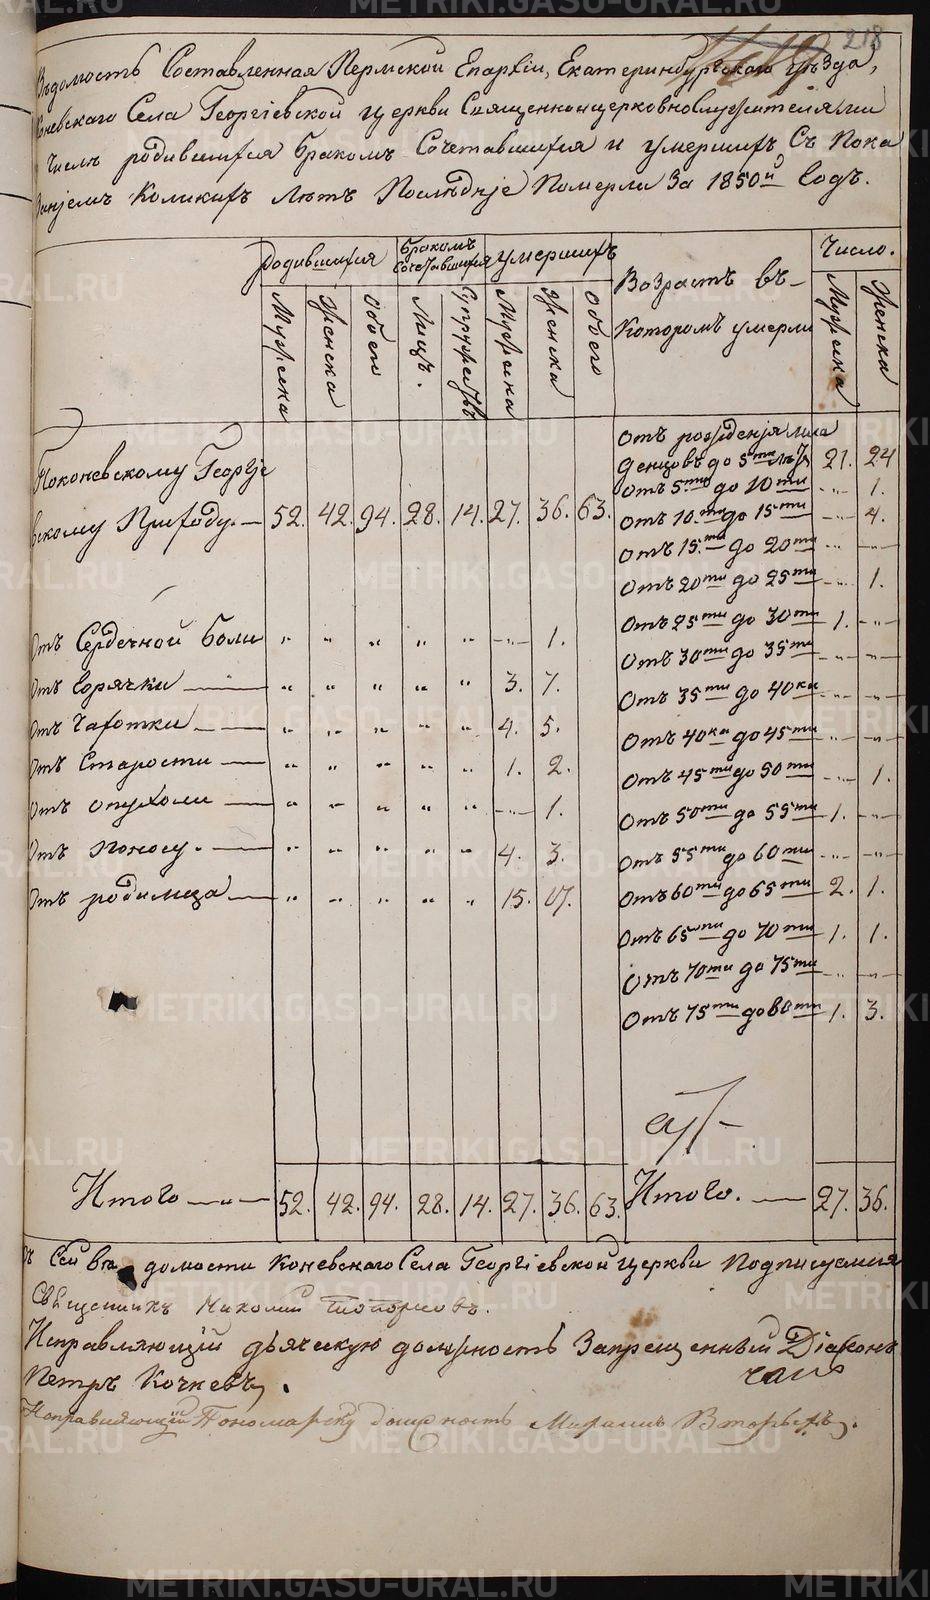 218
Вѣдомость Составленная Пермской Епархіи, Екатеринбургскаго уѣзда,
Коневскаго Села Георгіевской церкви Священноицерковнослужителями
Числѣ родившихся бракомъ Сочетавшихся и умершихъ Съ Пока
заніемъ Коликихъ лѣтъ Послѣдніе Померли За 1850й Годъ.
родившихся бракомъ Сочетавшихся умершихъ Возрастъ въ Которомъ умерли Число.
Мужеска Женска Обоего Лицъ. Супружествъ Мужеска Женска Обоего Мужеска Женска
Отъ рожденія мла
денцовъ до 5ти лѣтъ 21. 24
Отъ 5ти до 10ти „ 1.
Поконевскому Георгіе
вскому Приходу. 52. 42. 94. 28. 14. 27. 36. 63.
Отъ 10ти до 15ти „ 4.
Отъ 15ти до 20ти „ „
Отъ 20ти до 25ти „ 1.
Отъ 25ти до 30ти 1. „
Отъ Сердечной боли „ „ „ „ „ „ 1.
Отъ 30ти до 35ти „ „
Отъ Горячки „ „ „ „ „ 3. 7.
Отъ 35ти до 40ка „ „
Отъ Чахотки „ „ „ „ „ 4. 5.
Отъ 40ка до 45ти „ „
Отъ Старости „ „ „ „ „ 1. 2.
Отъ 45ти до 50ти „ 1.
Отъ опухоли „ „ „ „ „ „ 1.
Отъ 50ти до 55ти 1. „
Отъ поносу. „ „ „ „ „ 4. 3.
Отъ 55ти до 60ти „ „
Отъ родимца „ „ „ „ „ 15. 17.
Отъ 60ти до 65ти 2. 1.
Отъ 65ти до 70ти 1. 1.
Отъ 70ти до 75ти „ „
Отъ 75ти до 80ти 1. 3.
Итого 52. 42. 94. 28. 14. 27. 36. 63. Итого. 27. 36.
Къ Сей вѣдомости Коневскаго Села Георгіевской церкви Подписуемся
Священникъ Николай Топорковъ.
Исправляющій дьяческую должность Запрещенный Діаконъ
Петръ Кочневъ.
Исправляющій Пономарску должность Вторыхъ.
METRIKI.GASO-URAL.RU